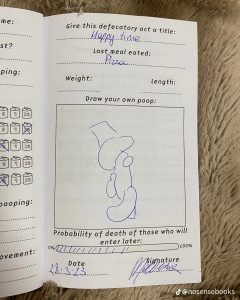 me:
Give this defecatory act a title:
Happy time
st?
Last meal eaten:
Pizza
ping:
Weight:
Length:
Draw your own poop:
ooping:
Probability of death of those who will
enter later:
0%
100%
ovement:
Date
Signature
28-3-23
@nosensebooks